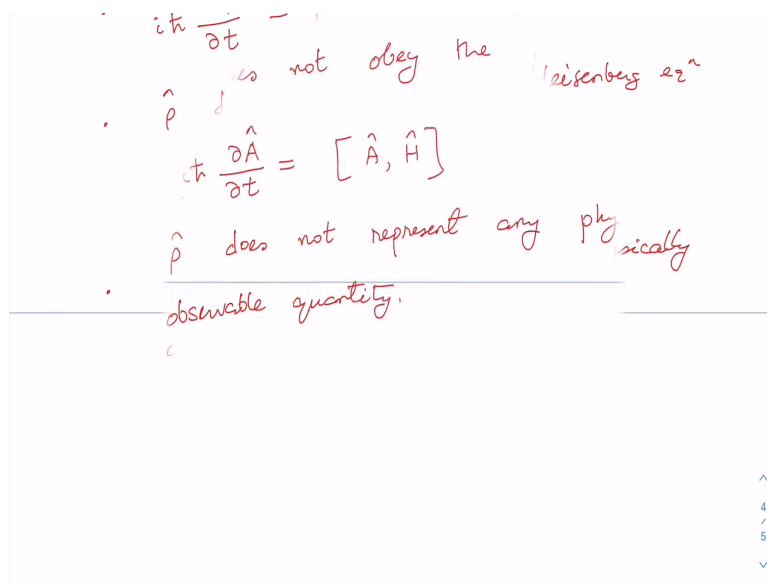 iħ ∂t =
· ρ̂ es not obey the eisenberg eqⁿ
iħ ∂Â/∂t = [Â, Ĥ]
· ρ̂ does not represent any physically
observable quantity.
4
/
5